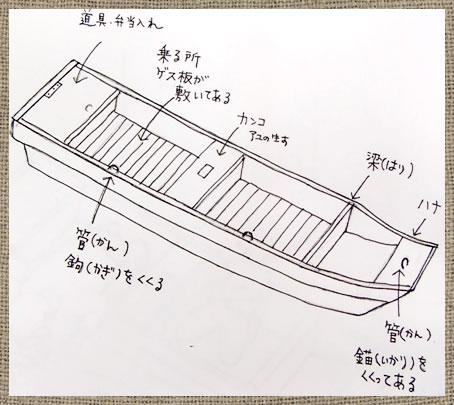 道具・弁当入れ
乗る所
ゲス板が
敷いてある
カンコ
アユの生す
梁(はり)
ハナ
管(かん)
鉤(かぎ)をくくる
管(かん)
錨(いかり)を
くくってある